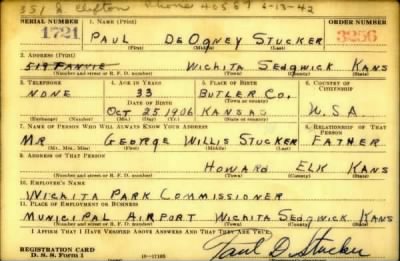 351 S Clifton Phone 40587 6-13-42
SERIAL NUMBER 1. NAME (Print) ORDER NUMBER
1721 PAUL DEOGNEY STUCKER 3256
(First) (Middle) (Last)
2. ADDRESS (Print)
519 FANNIE WICHITA SEDGWICK KANS
(Number and street or R. F. D. number) (Town) (County) (State)
3. TELEPHONE 4. AGE IN YEARS 5. PLACE OF BIRTH 6. COUNTRY OF CITIZENSHIP
NONE 33 BUTLER CO.
DATE OF BIRTH (Town or county)
OCT 25 1906 KANSAS U.S.A.
(Mo.) (Day) (Yr.) (State or country)
7. NAME OF PERSON WHO WILL ALWAYS KNOW YOUR ADDRESS 8. RELATIONSHIP OF THAT PERSON
MR GEORGE WILLIS STUCKER FATHER
(Mr., Mrs., Miss) (First) (Middle) (Last)
9. ADDRESS OF THAT PERSON
HOWARD ELK KANS
(Number and street or R. F. D. number) (Town) (County) (State)
10. EMPLOYER'S NAME
WICHITA PARK COMMISSIONER
11. PLACE OF EMPLOYMENT OR BUSINESS
MUNICIPAL AIRPORT WICHITA SEDGWICK KANS
(Number and street or R. F. D. number) (Town) (County) (State)
I AFFIRM THAT I HAVE VERIFIED ABOVE ANSWERS AND THAT THEY ARE TRUE.
REGISTRATION CARD
D. S. S. Form 1 16—17105 Paul D. Stucker